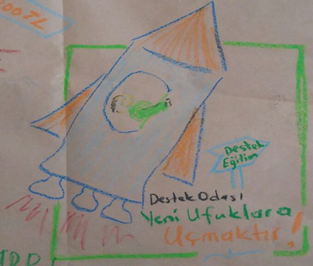 00 TL
Destek
Eğitim
Destek Odası
Yeni Ufuklara
Uçmaktır!